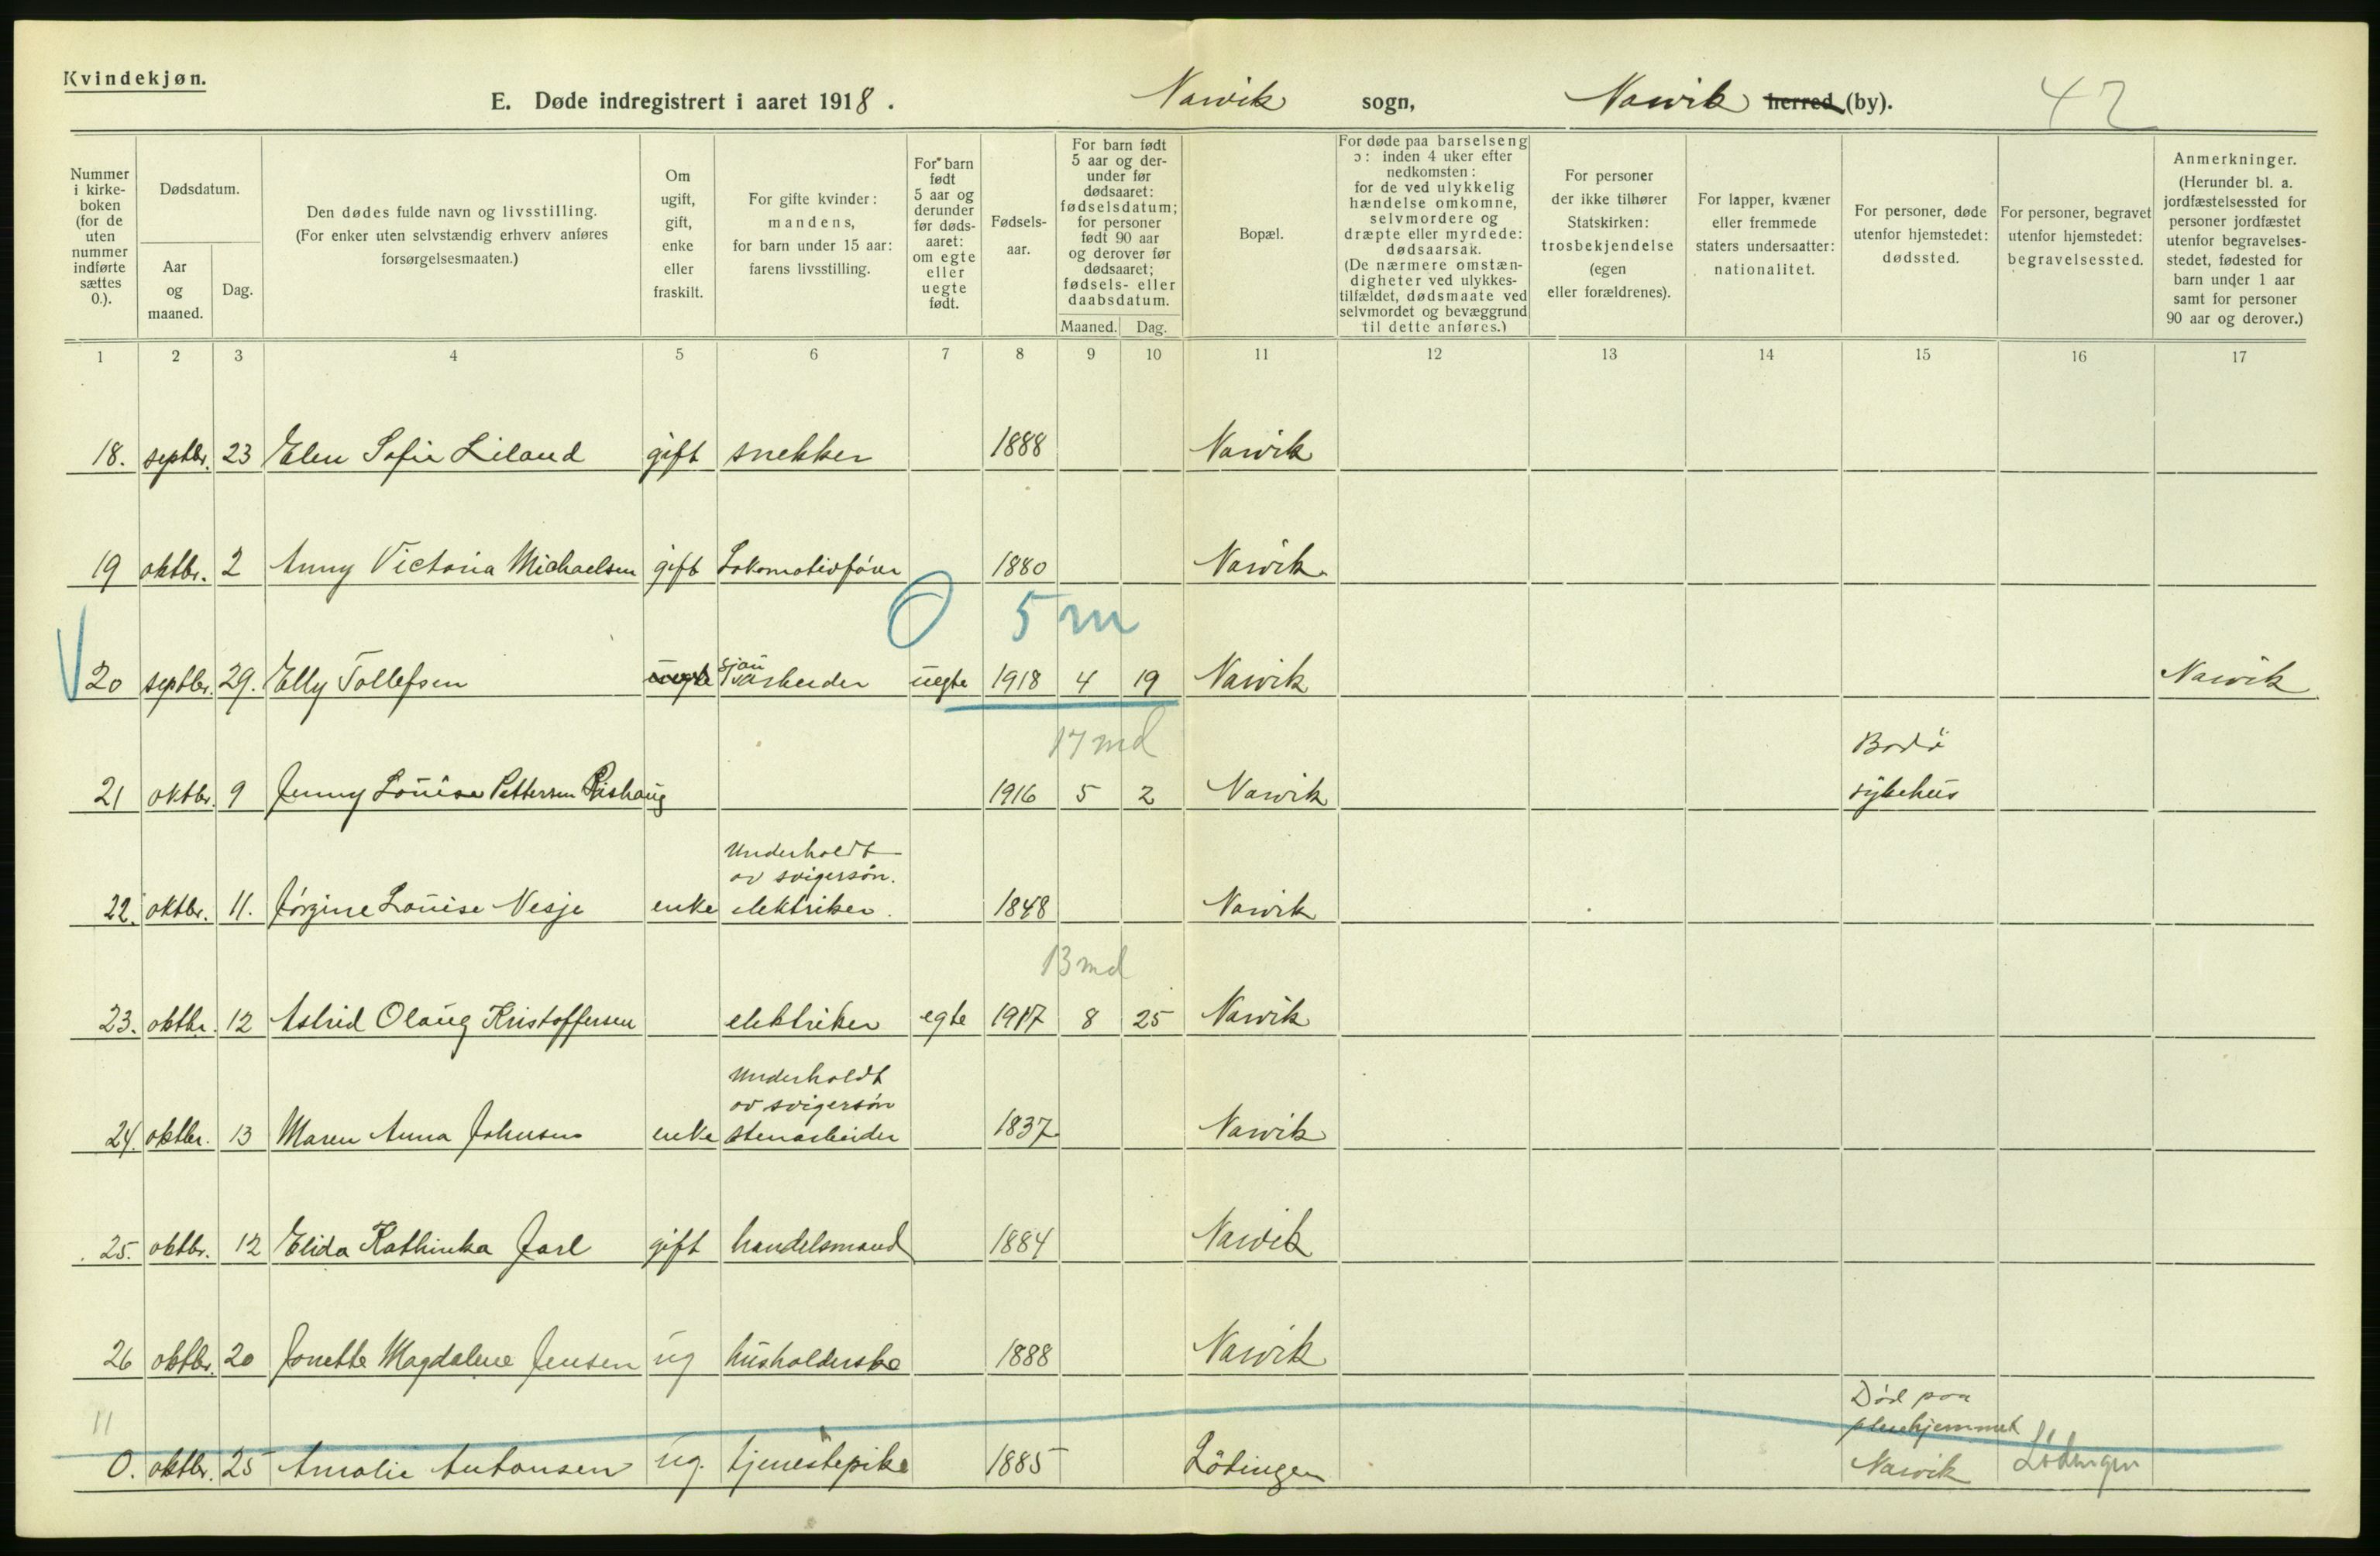 Kvindekjøn.
E. Døde indregistrert i aaret 1918. Narvik sogn, Narvik herred (by). 42
Nummer i kirkeboken (for de uten nummer indførte sættes 0.).
Dødsdatum.
Aar og maaned.
Dag.
Den dødes fulde navn og livsstilling.
(For enker uten selvstændig erhverv anføres forsørgelsesmaaten.)
Om ugift, gift, enke eller fraskilt.
For gifte kvinder: mandens, for barn under 15 aar: farens livsstilling.
For barn født 5 aar og derunder før dødsaaret: om egte eller uegte født.
Fødselsaar.
For barn født 5 aar og derunder før dødsaaret: fødselsdatum; for personer født 90 aar og derover før dødsaaret; fødsels- eller daabsdatum.
Maaned. Dag.
Bopæl.
For døde paa barselseng ɔ: inden 4 uker efter nedkomsten: for de ved ulykkelig hændelse omkomne, selvmordere og dræpte eller myrdede: dødsaarsak.
(De nærmere omstændigheter ved ulykkestilfældet, dødsmaate ved selvmordet og bevæggrund til dette anføres.)
For personer der ikke tilhører Statskirken: trosbekjendelse (egen eller forældrenes).
For lapper, kvæner eller fremmede staters undersaatter: nationalitet.
For personer, døde utenfor hjemstedet: dødssted.
For personer, begravet utenfor hjemstedet: begravelsessted.
Anmerkninger.
(Herunder bl. a. jordfæstelsessted for personer jordfæstet utenfor begravelsesstedet, fødested for barn under 1 aar samt for personer 90 aar og derover.)
1 2 3 4 5 6 7 8 9 10 11 12 13 14 15 16 17
18. septbr. 23 Elen Sofie Liland gift snekker 1888 Narvik
19 oktbr. 2 Anny Victoria Michaelsen gift Lokomotivfører 1880 Narvik
0 5 m
20 septbr. 29. Elly Tollefsen uegte sjauarbeider uegte 1918 4 19 Narvik Narvik
17 md Bodö
21 oktbr. 9 Jenny Louise Pettersen Rishaug 1916 5 2 Narvik sykehus
Underholdt
av svigersön.
22. oktbr. 11. Jörgine Louise Vesje enke elektriker. 1848 Narvik
13 md
23. oktbr. 12 Astrid Olaug Kristoffersen elektriker egte 1917 8 25 Narvik
Underholdt
av svigersön
24. oktbr. 13 Maren Anna Johnsen enke stenarbeider 1837 Narvik
25. oktbr. 12 Elida Kathinka Jarl gift handelsmand 1884 Narvik
26 oktbr. 20 Jonette Magdalene Jensen ug husholderske 1888 Narvik
11 Död paa
pleiehjemmet
0. oktbr. 25 Amalie Antonsen ug. tjenestepike 1885 Lödingen Narvik Lödingen